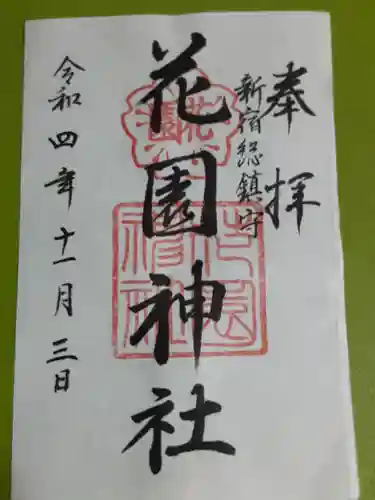 奉拝
新宿総鎮守
花園神社
令和四年十一月三日